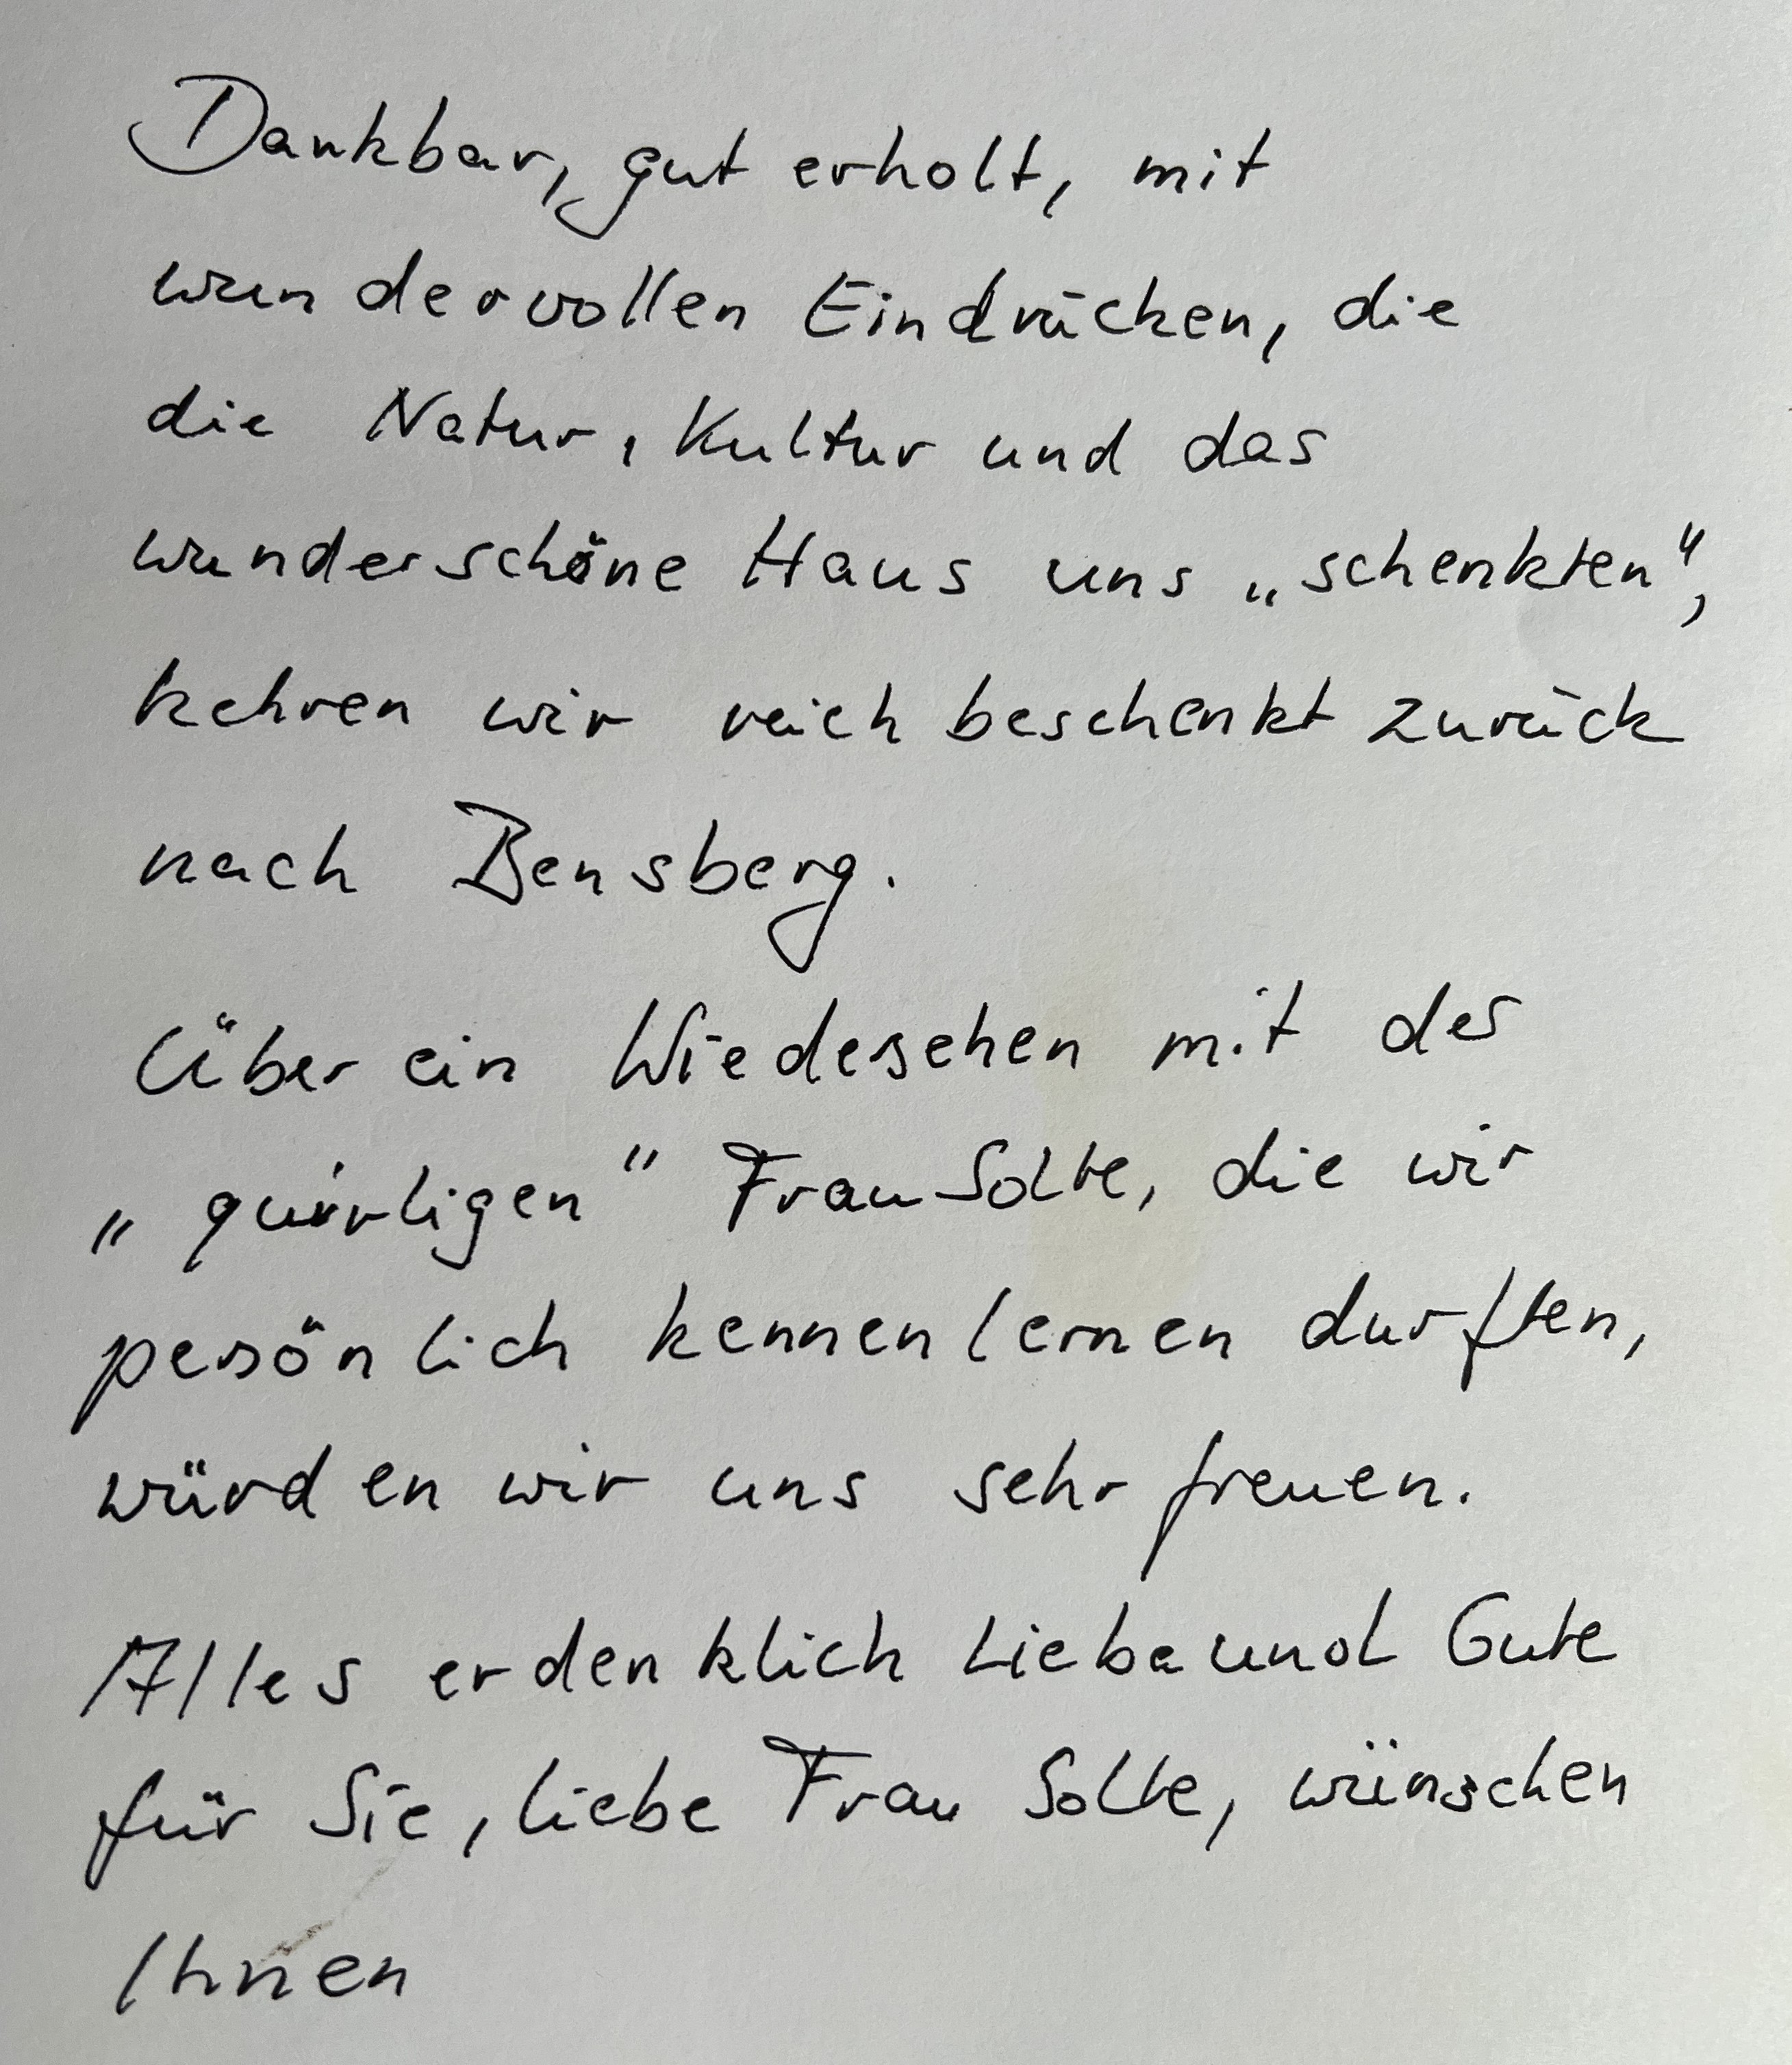 Dankbar, gut erholt, mit
wundervollen Eindrücken, die
die Natur, Kultur und das
wunderschöne Haus uns „schenkten“,
kehren wir reich beschenkt zurück
nach Bensberg.
Über ein Wiedersehen mit der
„quirligen“ Frau Solte, die wir
persönlich kennenlernen durften,
würden wir uns sehr freuen.
Alles erdenklich Liebe und Gute
für Sie, liebe Frau Solte, wünschen
Ihnen